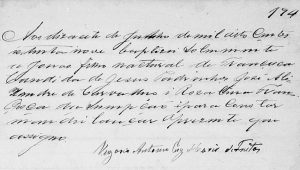 194
Aos dizoito de Junho de mil oito Centos
e settenta e nove baptizei solemnmente
a Jonas filho natural de Francesca
Candida de Jesus Padrinhos José Ale
xandre de Carvalho i dona Anna Fran
cisca do e para Constar
mandei lancar o presente que
assigno
Vigario Antonio Maria de Freitas